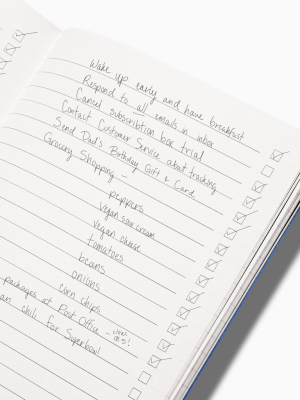 Wake up early and have breakfast
Respond to all emails in inbox
Cancel subscribtion box trial
Contact Customer Service about tracking
Send Dad's Birthday Gift & Card
Grocery Shopping -
peppers
Vegan sour cream
vegan cheese
tomatoes
beans
onions
corn chips
packages at Post Office - closes @5!
chili for Superbowl